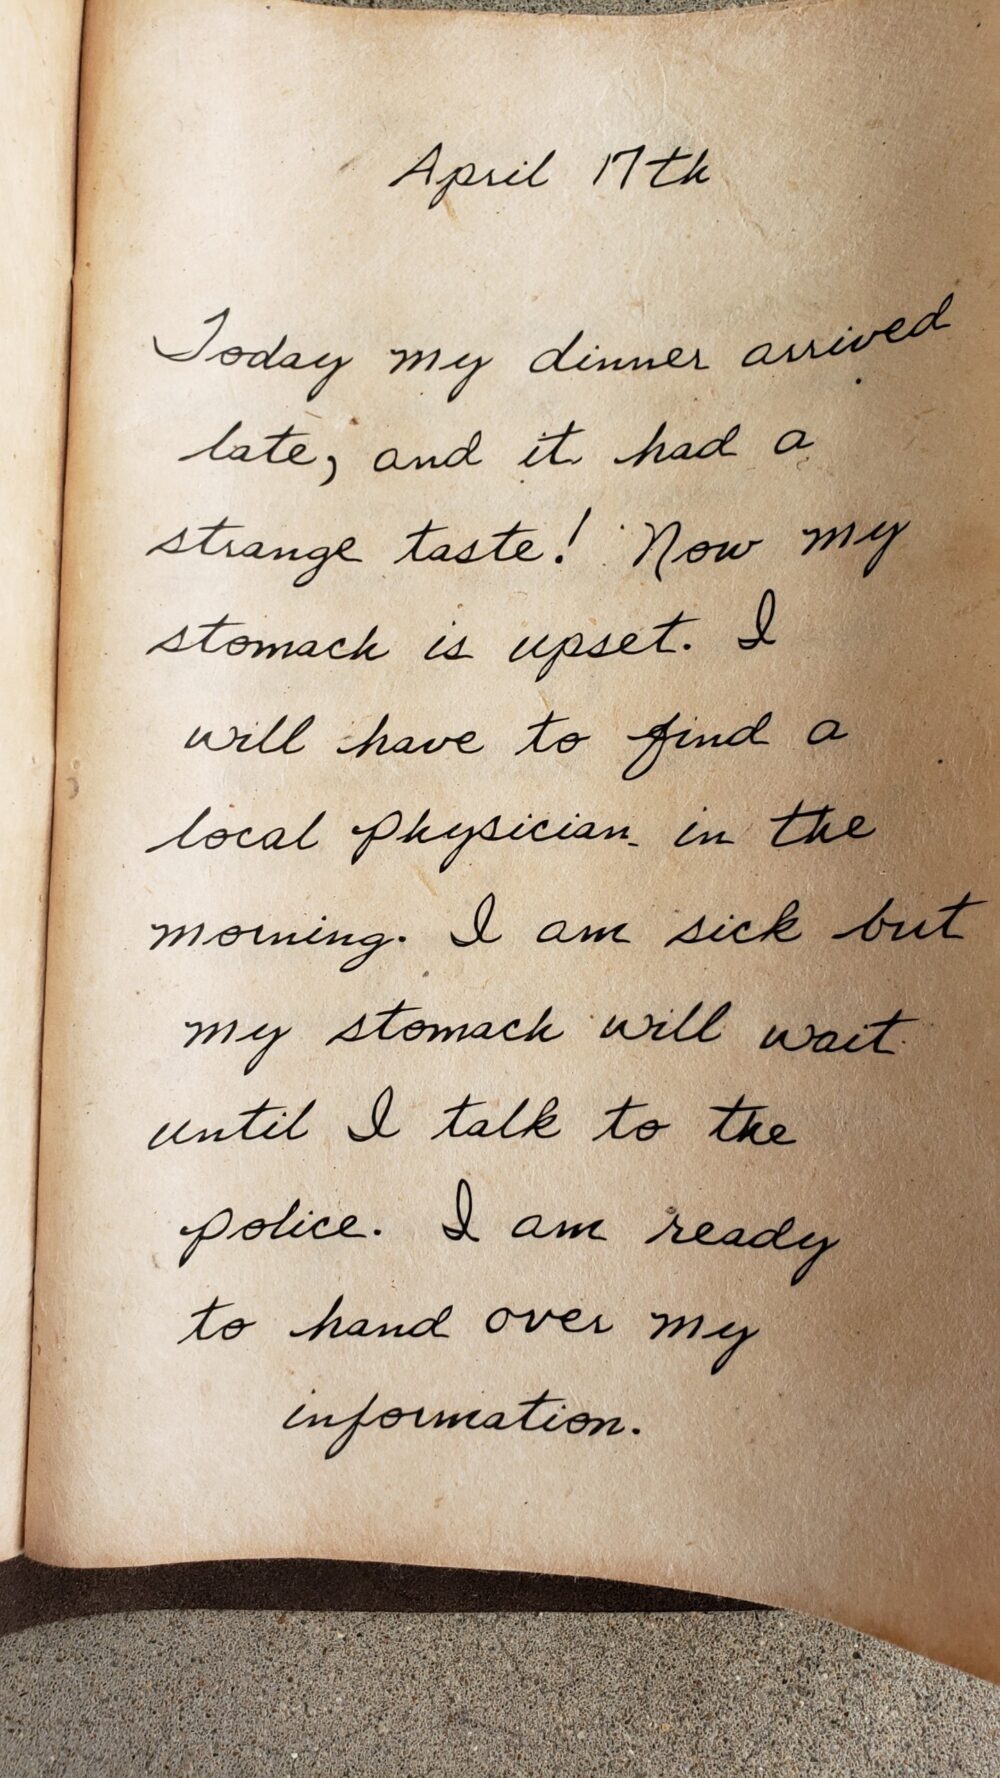 April 17th
Today my dinner arrived
late, and it had a
strange taste! Now my
stomach is upset. I
will have to find a
local physician in the
morning. I am sick but
my stomach will wait
until I talk to the
police. I am ready
to hand over my
information.